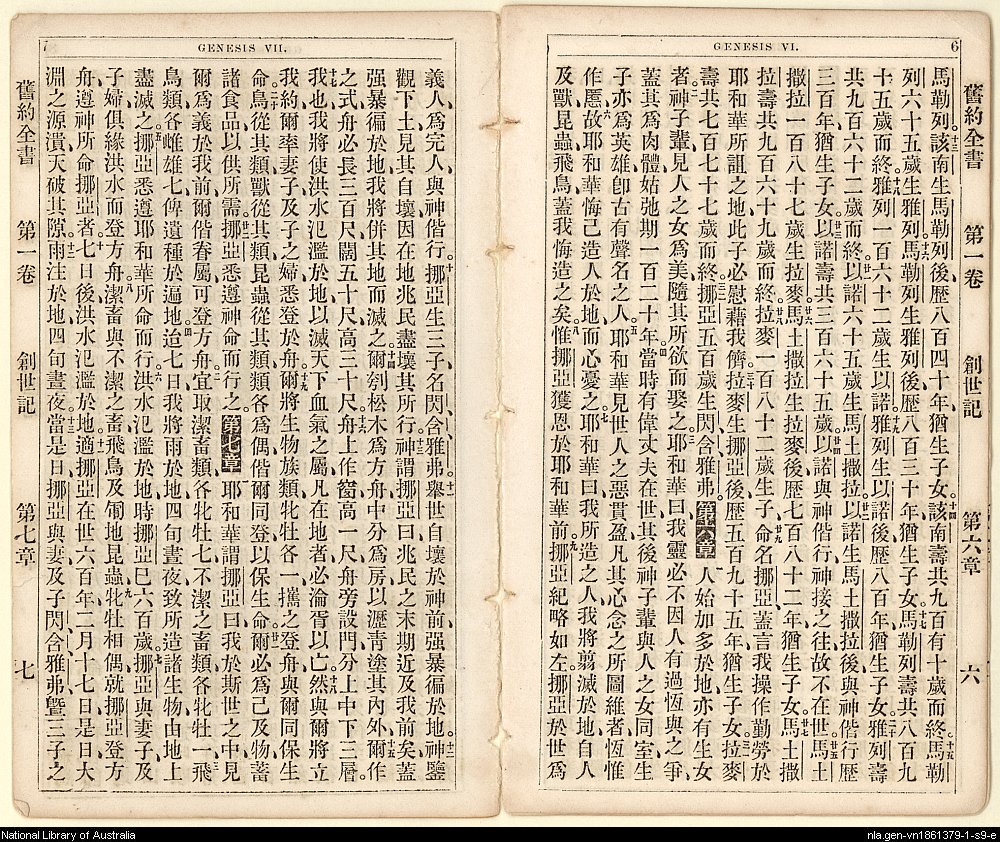 GENESIS VI.
6
舊約全書 第一卷 創世記 第六章 六
馬勒列該南生馬勒列後歷八百四十年猶生子女該南壽共九百有十歲而終馬勒
列六十五歲生雅列馬勒列生雅列後歷八百三十年猶生子女馬勒列壽共八百九
十五歲而終雅列一百六十二歲生以諾雅列生以諾後歷八百年猶生子女雅列壽
共九百六十二歲而終以諾六十五歲生馬土撒拉以諾生馬土撒拉後與神偕行歷
三百年猶生子女以諾壽共三百六十五歲以諾與神偕行神接之往故不在世馬土
撒拉一百八十七歲生拉麥馬土撒拉生拉麥後歷七百八十二年猶生子女馬土撒
拉壽共九百六十九歲而終拉麥一百八十二歲生子命名挪亞蓋言我操作勤勞於
耶和華所詛之地此子必慰藉我儕拉麥生挪亞後歷五百九十五年猶生子女拉麥
壽共七百七十七歲而終挪亞五百歲生閃含雅弗 第六章 人始加多於地亦有生女
者神子輩見人之女爲美隨其所欲而娶之耶和華曰我靈必不因人有過恆與之爭
蓋其爲肉體姑弛期一百二十年當時有偉丈夫在世其後神子輩與人之女同室生
子亦爲英雄卽古有聲名之人耶和華見世人之惡貫盈凡其心念之所圖維者恆惟
作慝故耶和華悔己造人於地而心憂之耶和華曰我所造之人我將翦滅於地自人
及獸昆蟲飛鳥蓋我悔造之矣惟挪亞獲恩於耶和華前挪亞紀略如左挪亞於世爲
GENESIS VII.
7
義人爲完人與神偕行挪亞生三子名閃含雅弗舉世自壞於神前强暴徧於地神鑒
觀下土見其自壞因在地兆民盡壞其所行神謂挪亞曰兆民之末期近及我前矣蓋
强暴徧於地我將併其地而滅之爾刳松木爲方舟中分爲房以瀝青塗其內外爾作
之式舟必長三百尺闊五十尺高三十尺舟上作窗高一尺舟旁設門分上中下三層
我也我將使洪水氾濫於地以滅天下血氣之屬凡在地者必淪胥以亡然與爾將立
我約爾率妻子及子之婦悉登於舟爾將生物族類牝牡各一攜之登舟與爾同保生
命鳥從其類獸從其類昆蟲從其類類各爲偶偕爾同登以保生命爾必爲己及物蓄
諸食品以供所需挪亞悉遵神命而行之 第七章 耶和華謂挪亞曰我於斯世之中見
爾爲義於我前爾偕眷屬可登方舟宜取潔畜類各牝牡七不潔之畜類各牝牡一飛
鳥類各雌雄七俾遺種於遍地迨七日我將雨於地四旬晝夜致所造諸生物由地上
盡滅之挪亞悉遵耶和華所命而行洪水氾濫於地時挪亞巳六百歲挪亞與妻子及
子婦俱緣洪水而登方舟潔畜與不潔之畜飛鳥及匍地昆蟲牝牡相偶就挪亞登方
舟遵神所命挪亞者七日後洪水氾濫於地適挪亞在世六百年二月十七日是日大
淵之源潰天破其隙雨注於地四旬晝夜當是日挪亞與妻及子閃含雅弗曁三子之
舊約全書 第一卷 創世記 第七章 七
National Library of Australia
nla.gen-vn1861379-1-s9-e